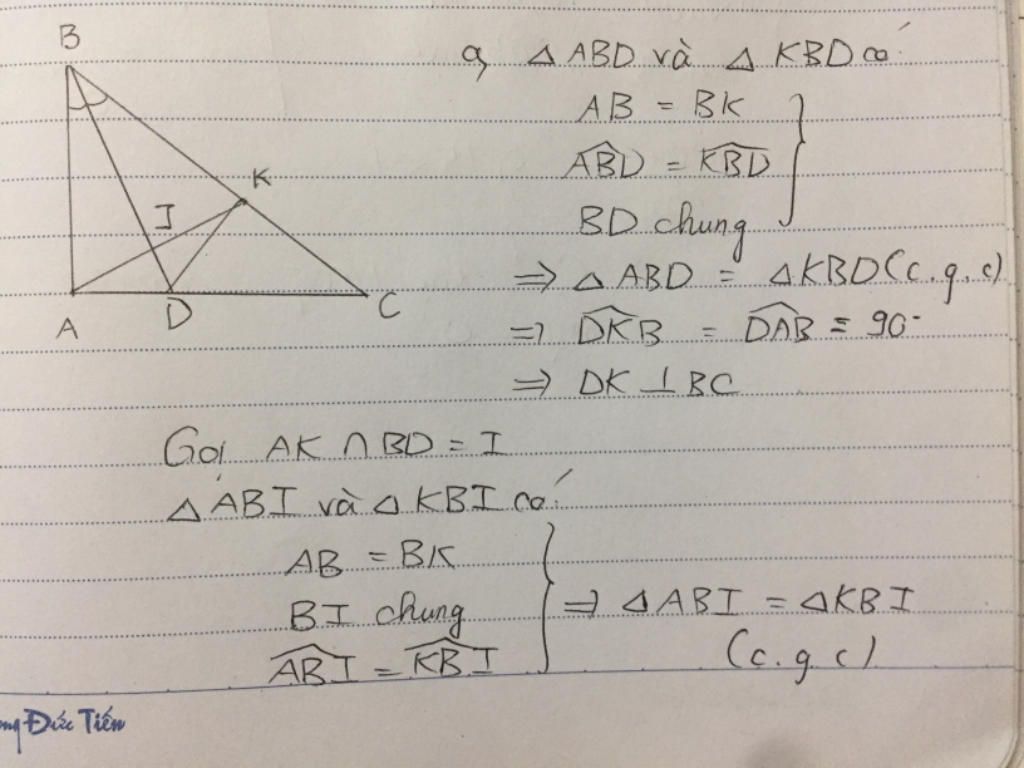 B
K
I
A
D
C
a, △ ABD và △ KBD có
AB = BK
ABD = KBD
BD chung
⇒ △ ABD = △KBD (c.g.c)
⇒ DKB = DAB = 90°
⇒ DK ⊥ BC
Gọi AK ∩ BD = I
△ ABI và △ KBI có:
AB = BK
BI chung
ABI = KBI
⇒ △ ABI = △KBI
(c.g.c)
Đức Tiến